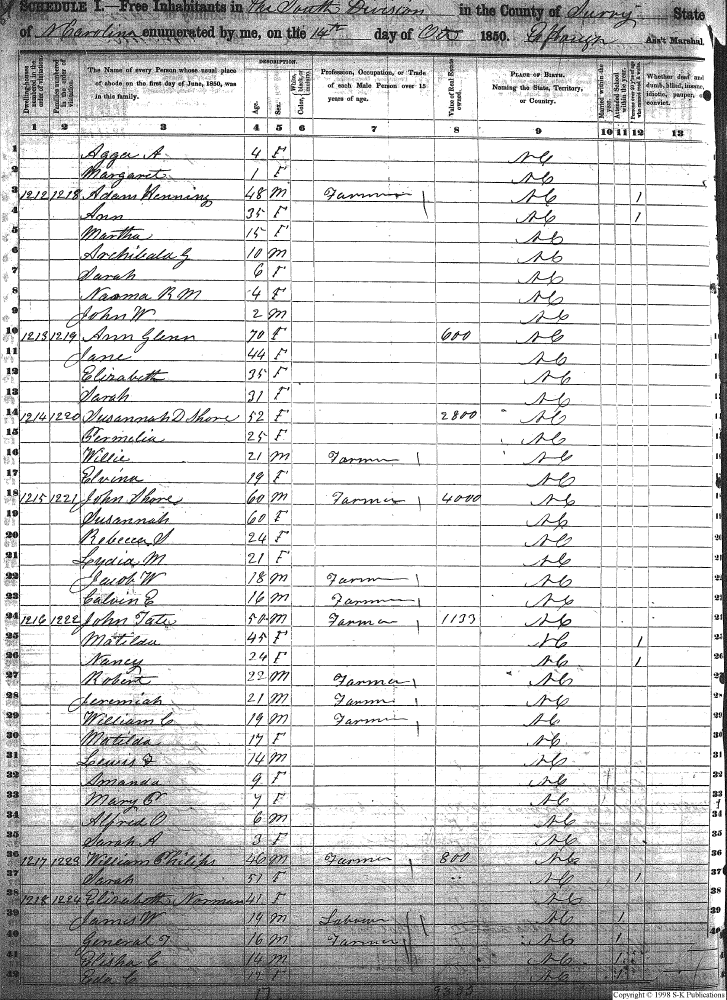 SCHEDULE I.—Free Inhabitants in the South Division in the County of Surry State
of N Carolina enumerated by me, on the 14th day of Oct 1850. Ass't Marshal.
DESCRIPTION.
Dwelling-houses numbered in the order of visitation.
Families numbered in the order of visitation.
The Name of every Person whose usual place of abode on the first day of June, 1850, was in this family.
Age.
Sex.
White, black, or mulatto.
Color,
Profession, Occupation, or Trade of each Male Person over 15 years of age.
Value of Real Estate owned.
PLACE OF BIRTH. Naming the State, Territory, or Country.
Married within the year.
Attended School within the year.
Whether deaf and dumb, blind, insane, idiotic, pauper, or convict.
1 2 3 4 5 6 7 8 9 10 11 12 13
1 Agger A 4 F NC
2 Margaret 1 F NC
3 1212 1218 Adam Henning 48 M Farmer NC 1
4 Ann 35 F NC 1
5 Martha 15 F NC
6 Archibald G 10 M NC
7 Sarah 6 F NC
8 Naoma R M 4 F NC
9 John W 2 M NC
10 1213 1219 Ann Glenn 70 F 600 NC
11 Jane 44 F NC
12 Elizabeth 35 F NC
13 Sarah 31 F NC
14 1214 1220 Susannah D Shore 52 F 2800 NC
15 Fermelia 25 F NC
16 Willie 21 M Farmer NC
17 Elvina 19 F NC
18 1215 1221 John Shore 60 M Farmer 4000 NC
19 Susannah 60 F NC
20 Rebecca S 24 F NC
21 Lydia M 21 F NC
22 Jacob W 18 M Farmer NC
23 Calvin E 16 M Farmer NC
24 1216 1222 John Tate 50 M Farmer 1133 NC
25 Matilda 45 F NC 1
26 Nancy 24 F NC 1
27 Robert 22 M Farmer NC
28 Jeremiah 21 M Farmer NC
29 William C 19 M Farmer NC
30 Matilda 17 F NC
31 Lewis F 14 M NC
32 Amanda 9 F NC
33 Mary E 7 F NC
34 Alfred O 6 M NC
35 Sarah A 3 F NC
36 1217 1223 William Philips 46 M Farmer 800 NC
37 Sarah 51 F NC 1
38 1218 1224 Elizabeth Norman 41 F NC
39 James W 19 M Labourer NC 1
40 General T 16 M Farmer NC 1
41 Elisha C 14 M NC 1
42 Eda C 12 F NC 1
Copyright © 1998 S-K Publications